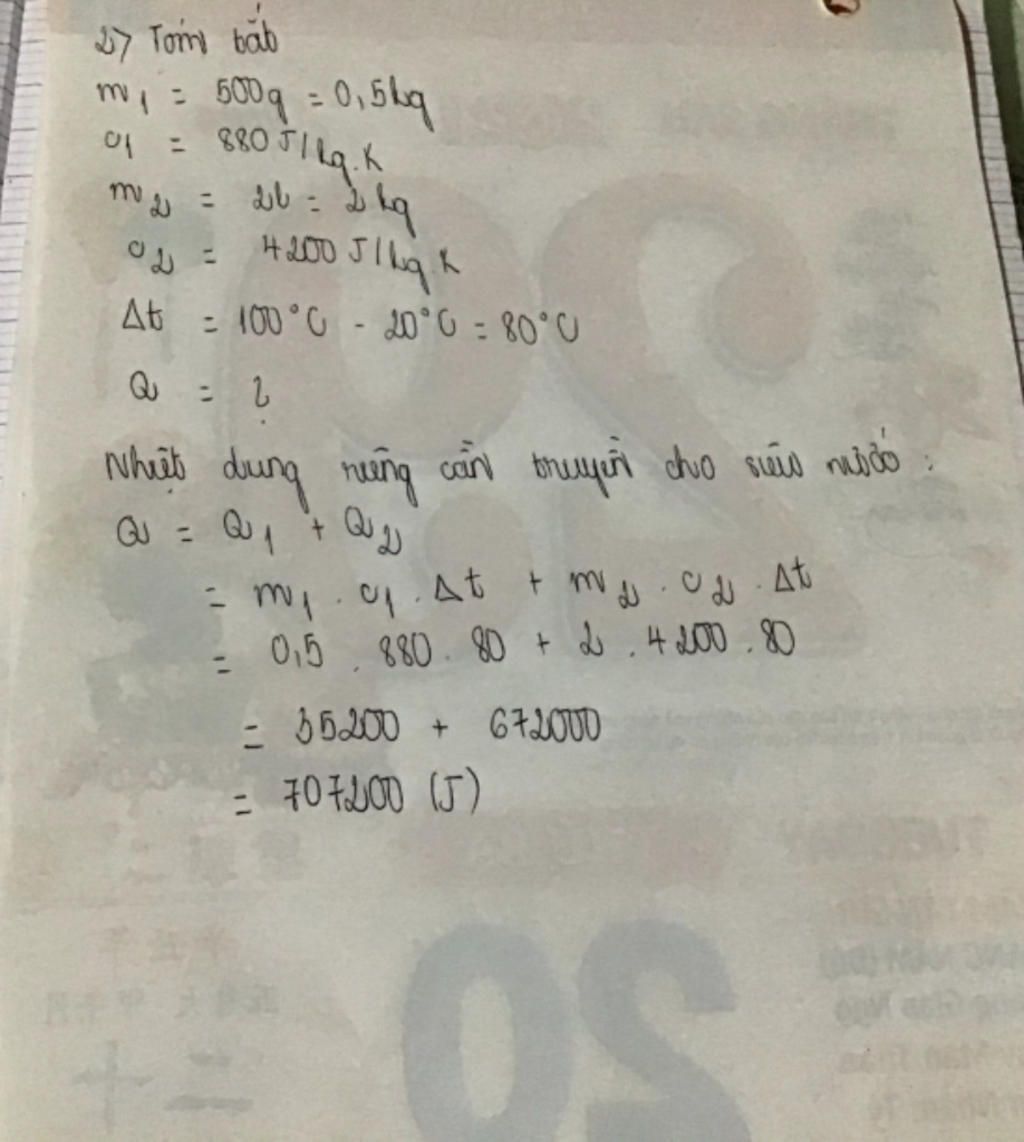 2) Tóm tắt
m₁ = 500g = 0,5kg
c₁ = 880 J/kg.K
m₂ = 2l = 2kg
c₂ = 4200 J/kg.K
Δt = 100°C - 20°C = 80°C
Q = ?
Nhiệt dung riêng cần truyền cho siêu nước:
Q = Q₁ + Q₂
= m₁ . c₁ . Δt + m₂ . c₂ . Δt
= 0,5 . 880 . 80 + 2 . 4200 . 80
= 35200 + 672000
= 707200 (J)
29